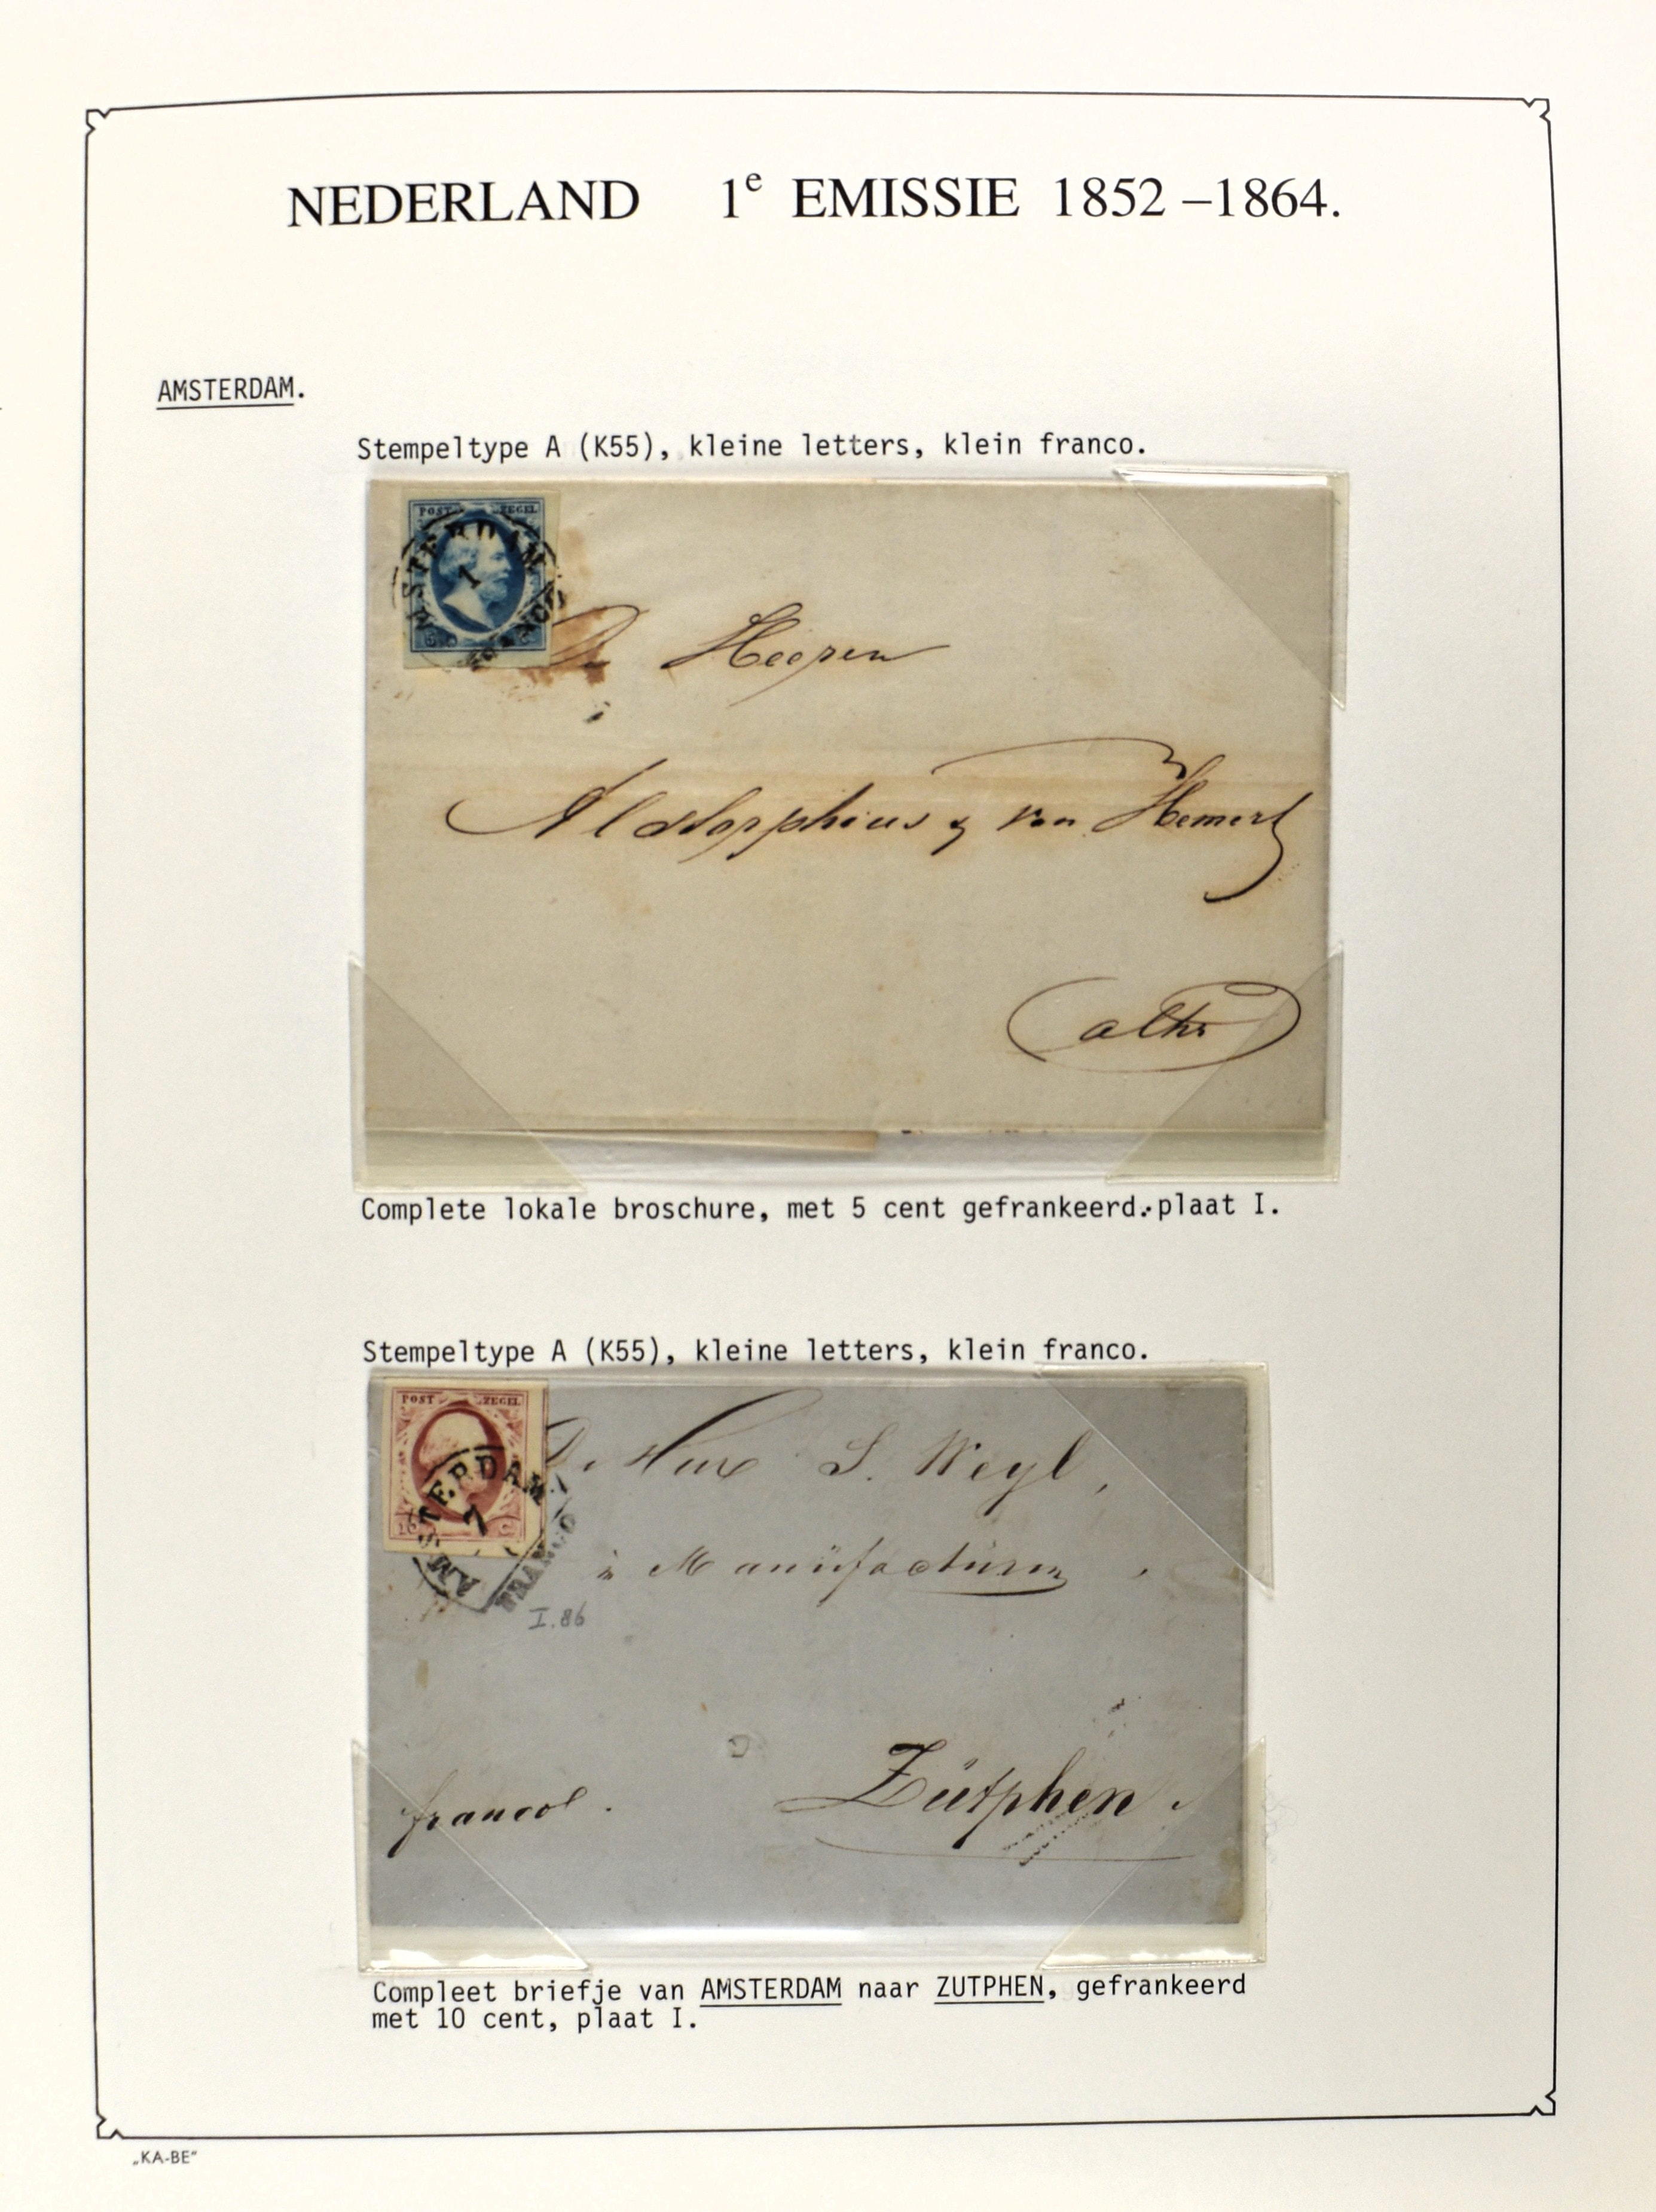 NEDERLAND 1e EMISSIE 1852–1864.
AMSTERDAM.
Stempeltype A (K55), kleine letters, klein franco.
POST ZEGEL
AMSTERDAM
1
FRANCO
De Heeren
van Hemert
alhr
Complete lokale broschure, met 5 cent gefrankeerd.plaat I.
Stempeltype A (K55), kleine letters, klein franco.
POST ZEGEL
10 C
AMSTERDAM
7
FRANCO
I.86
S. Weyl,
in Manüfactüren
francol.
Zütphen.
Compleet briefje van AMSTERDAM naar ZUTPHEN, gefrankeerd
met 10 cent, plaat I.
„KA-BE“